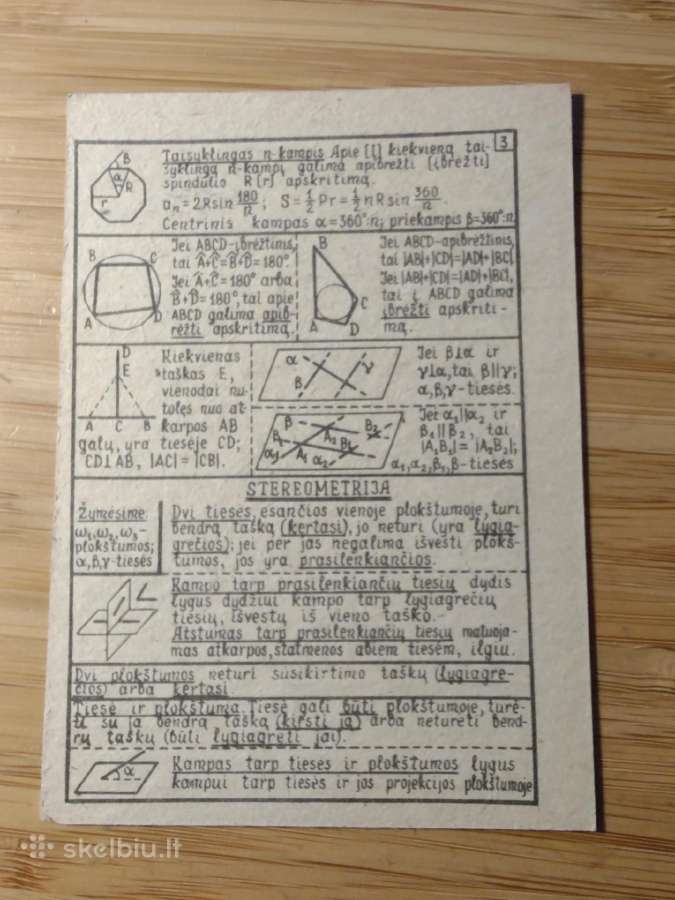 3
Taisyklingas n-kampis Apie [Į] kiekvieną tai-
syklingą n-kampį galima apibrėžti [įbrėžti]
spindulio R [r] apskritimą.
aₙ = 2R sin 180/n ; S = 1/2 Pr = 1/2 nR sin 360/n .
Centrinis kampas α = 360°:n; priekampis β = 360°:n.
B
α R
r
Jei ABCD-įbrėžtinis,
tai Â+Ĉ=B̂+D̂=180°.
Jei Â+Ĉ=180° arba
B̂+D̂=180°, tai apie
ABCD galima apib-
rėžti apskritimą.
B C
A D
Jei ABCD-apibrėžtinis,
tai |AB|+|CD|=|AD|+|BC|.
Jei |AB|+|CD|=|AD|+|BC|,
tai į ABCD galima
įbrėžti apskriti-
mą.
B
C
A D
Kiekvienas
taškas E,
vienodai nu-
tolęs nuo at-
karpos AB
galų, yra tiesėje CD;
CD⊥AB, |AC|=|CB|.
D
E
A C B
Jei β⊥α ir
γ⊥α, tai β||γ;
α,β,γ-tiesės.
α γ
β
Jei α₁||α₂ ir
β₁||β₂, tai
|A₁B₁|=|A₂B₂|;
α₁,α₂,β₁,β-tiesės
β B₂
B₁ A₂ B₁
α₁ A₁ α₂
STEREOMETRIJA
Žymėsime:
ω₁,ω₂,ω₃-
plokštumos;
α,β,γ-tiesės
Dvi tiesės, esančios vienoje plokštumoje, turi
bendrą tašką (kertasi), jo neturi (yra lygia-
grečios); jei per jas negalima išvesti plokš-
tumos, jos yra prasilenkiančios.
Kampo tarp prasilenkiančių tiesių dydis
lygus dydžiui kampo tarp lygiagrečių
tiesių, išvestų iš vieno taško.
Atstumas tarp prasilenkiančių tiesių matuoja-
mas atkarpos, statmenos abiem tiesėm, ilgiu.
Dvi plokštumos neturi susikirtimo taškų (lygiagre-
čios) arba kertasi.
Tiesė ir plokštuma. Tiesė gali būti plokštumoje, turė-
ti su ja bendrą tašką (kirsti ją) arba neturėti bend-
rų taškų (būti lygiagreti jai).
α
Kampas tarp tiesės ir plokštumos lygus
kampui tarp tiesės ir jos projekcijos plokštumoje
skelbiu.lt